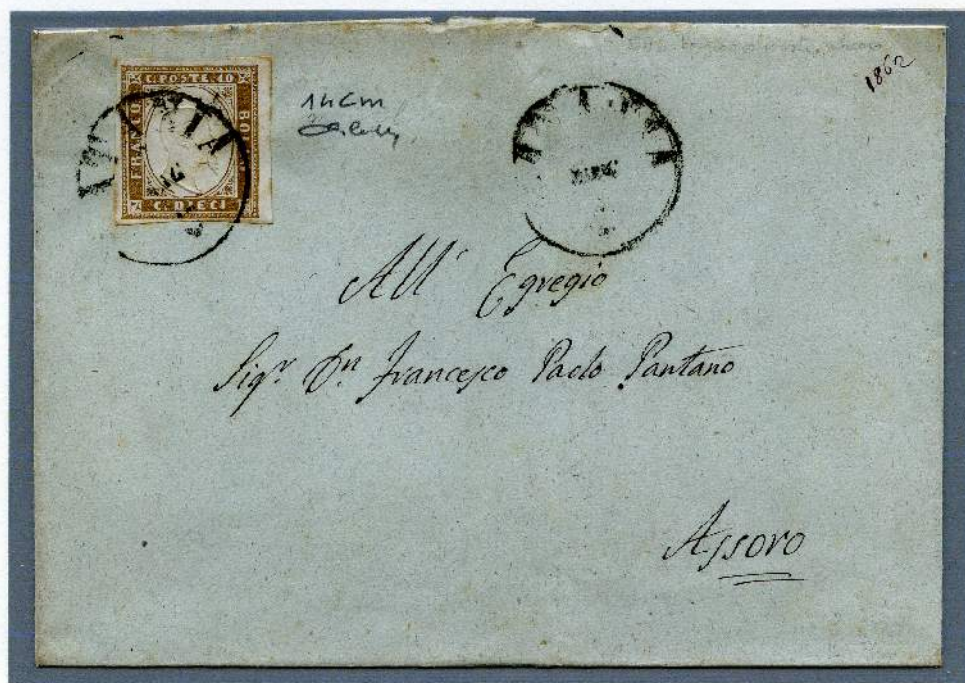 1862
C. POSTE 40
FRANCO
BOL
C. DIECI
14Cm
All' Egregio
Sigr. Dn. Francesco Paolo Pantano
Assoro